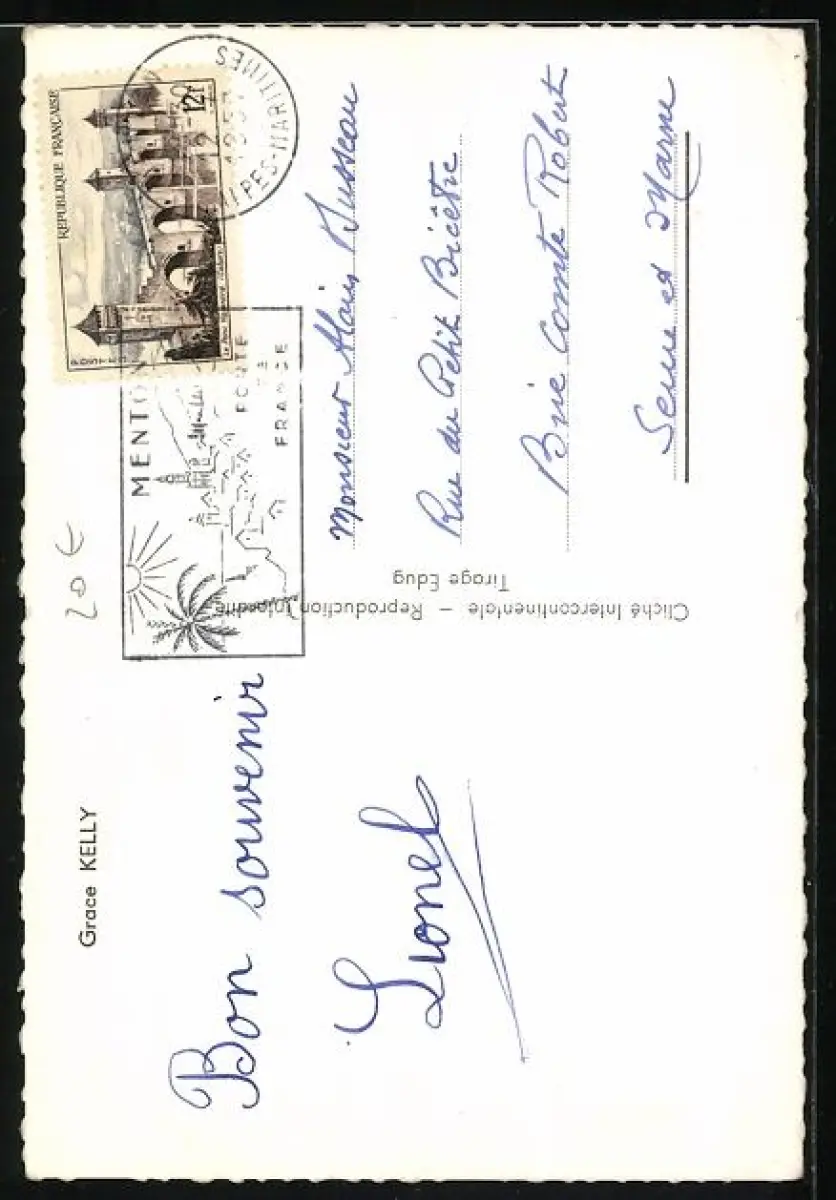 Grace KELLY
Bon souvenir
Lionel
Cliché Intercontinentale – Reproduction interdite
Tirage Edug
20 €
MENTON
PORTE
DE LA
FRANCE
REPUBLIQUE FRANÇAISE
12F
1957
ALPES-MARITIMES
Monsieur Alain Dusseau
Rue du Petit Bicêtre
Brie Comte Robert
Seine et Marne